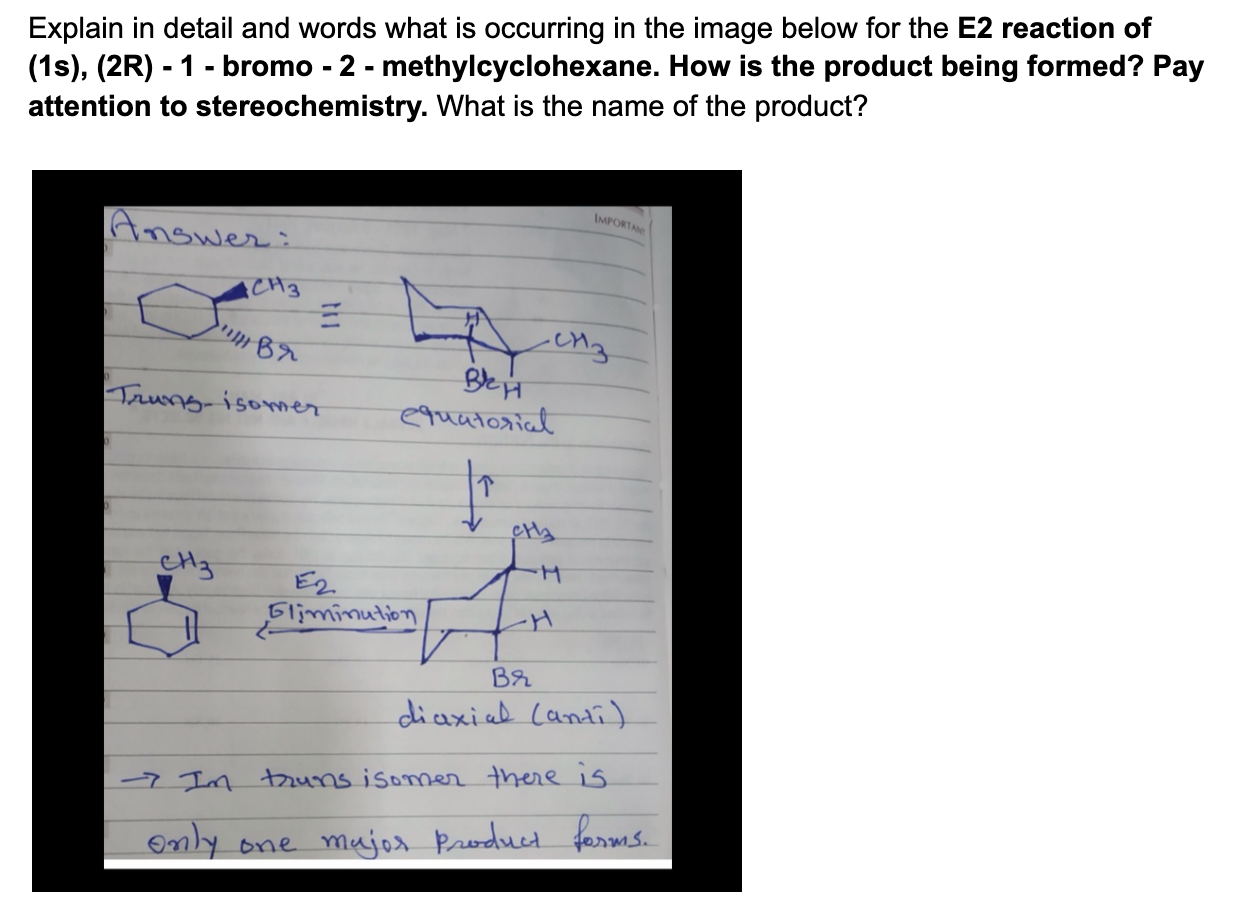 Explain in detail and words what is occurring in the image below for the E2 reaction of
(1s), (2R) - 1 - bromo - 2 - methylcyclohexane. How is the product being formed? Pay
attention to stereochemistry. What is the name of the product?
IMPORTANT
Answer:
CH3
Br
≡
H
CH3
Br H
Trans-isomer
equatorial
CH3
H
H
Br
CH3
E2
Elimination
diaxial (anti)
→ In trans isomer there is
only one major product forms.